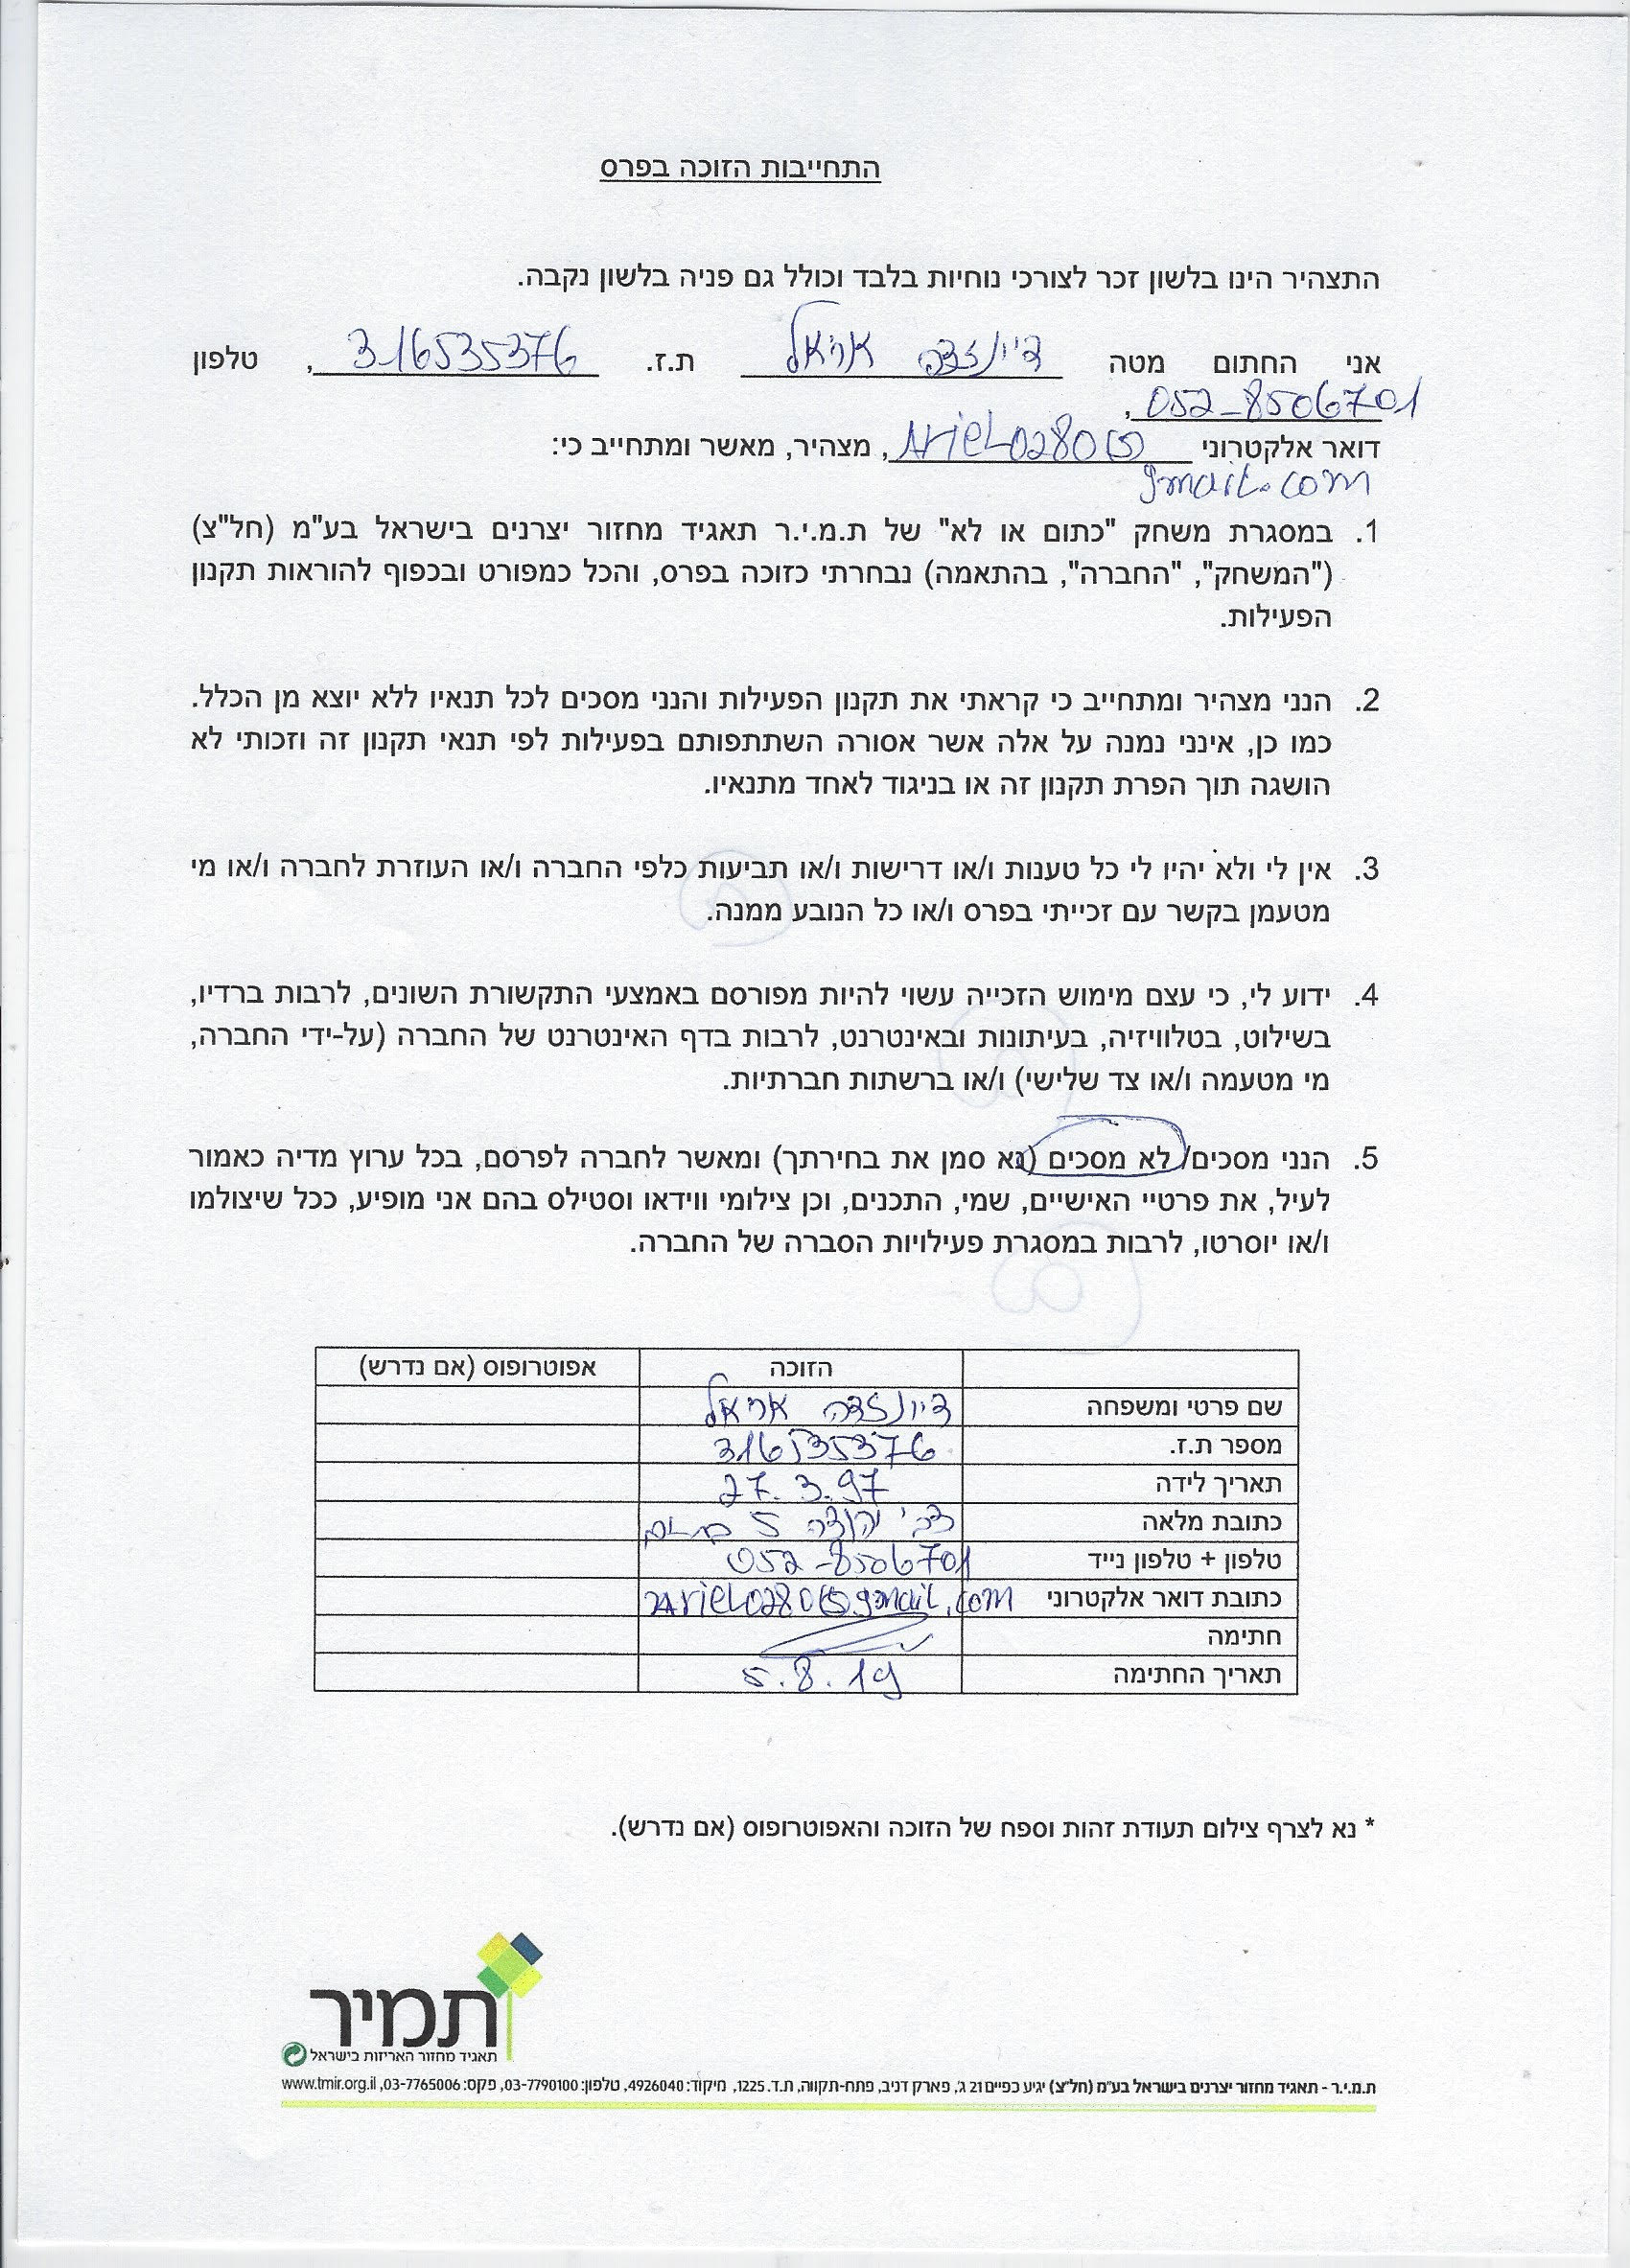 התחייבות הזוכה בפרס
התצהיר הינו בלשון זכר לצורכי נוחיות בלבד וכולל גם פניה בלשון נקבה.
אני החתום מטה אריאל ת.ז. 316535376, טלפון
052-8506701,
דואר אלקטרוני Ariel0280@, מצהיר, מאשר ומתחייב כי:
gmail.com
1. במסגרת משחק "כתום או לא" של ת.מ.י.ר תאגיד מחזור יצרנים בישראל בע"מ (חל"צ)
("המשחק", "החברה", בהתאמה) נבחרתי כזוכה בפרס, והכל כמפורט ובכפוף להוראות תקנון
הפעילות.
2. הנני מצהיר ומתחייב כי קראתי את תקנון הפעילות והנני מסכים לכל תנאיו ללא יוצא מן הכלל.
כמו כן, אינני נמנה על אלה אשר אסורה השתתפותם בפעילות לפי תנאי תקנון זה וזכותי לא
הושגה תוך הפרת תקנון זה או בניגוד לאחד מתנאיו.
3. אין לי ולא יהיו לי כל טענות ו/או דרישות ו/או תביעות כלפי החברה ו/או העוזרת לחברה ו/או מי
מטעמן בקשר עם זכייתי בפרס ו/או כל הנובע ממנה.
4. ידוע לי, כי עצם מימוש הזכייה עשוי להיות מפורסם באמצעי התקשורת השונים, לרבות ברדיו,
בשילוט, בטלוויזיה, בעיתונות ובאינטרנט, לרבות בדף האינטרנט של החברה (על-ידי החברה,
מי מטעמה ו/או צד שלישי) ו/או ברשתות חברתיות.
5. הנני מסכים/ לא מסכים (נא סמן את בחירתך) ומאשר לחברה לפרסם, בכל ערוץ מדיה כאמור
לעיל, את פרטיי האישיים, שמי, התכנים, וכן צילומי ווידאו וסטילס בהם אני מופיע, ככל שיצולמו
ו/או יוסרטו, לרבות במסגרת פעילויות הסברה של החברה.
הזוכה אפוטרופוס (אם נדרש)
שם פרטי ומשפחה אריאל
מספר ת.ז. 316535376
תאריך לידה 27.3.97
כתובת מלאה יהודה 5
טלפון + טלפון נייד 052-8506701
כתובת דואר אלקטרוני Ariel0280@gmail.com
חתימה
תאריך החתימה 5.8.19
* נא לצרף צילום תעודת זהות וספח של הזוכה והאפוטרופוס (אם נדרש).
תמיר
תאגיד מחזור האריזות בישראל
ת.מ.י.ר - תאגיד מחזור יצרנים בישראל בע"מ (חל"צ) יגיע כפיים 21 ג', פארק דניב, פתח-תקווה, ת.ד. 1225, מיקוד: 4926040, טלפון: 03-7790100, פקס: 03-7765006, www.tmir.org.il